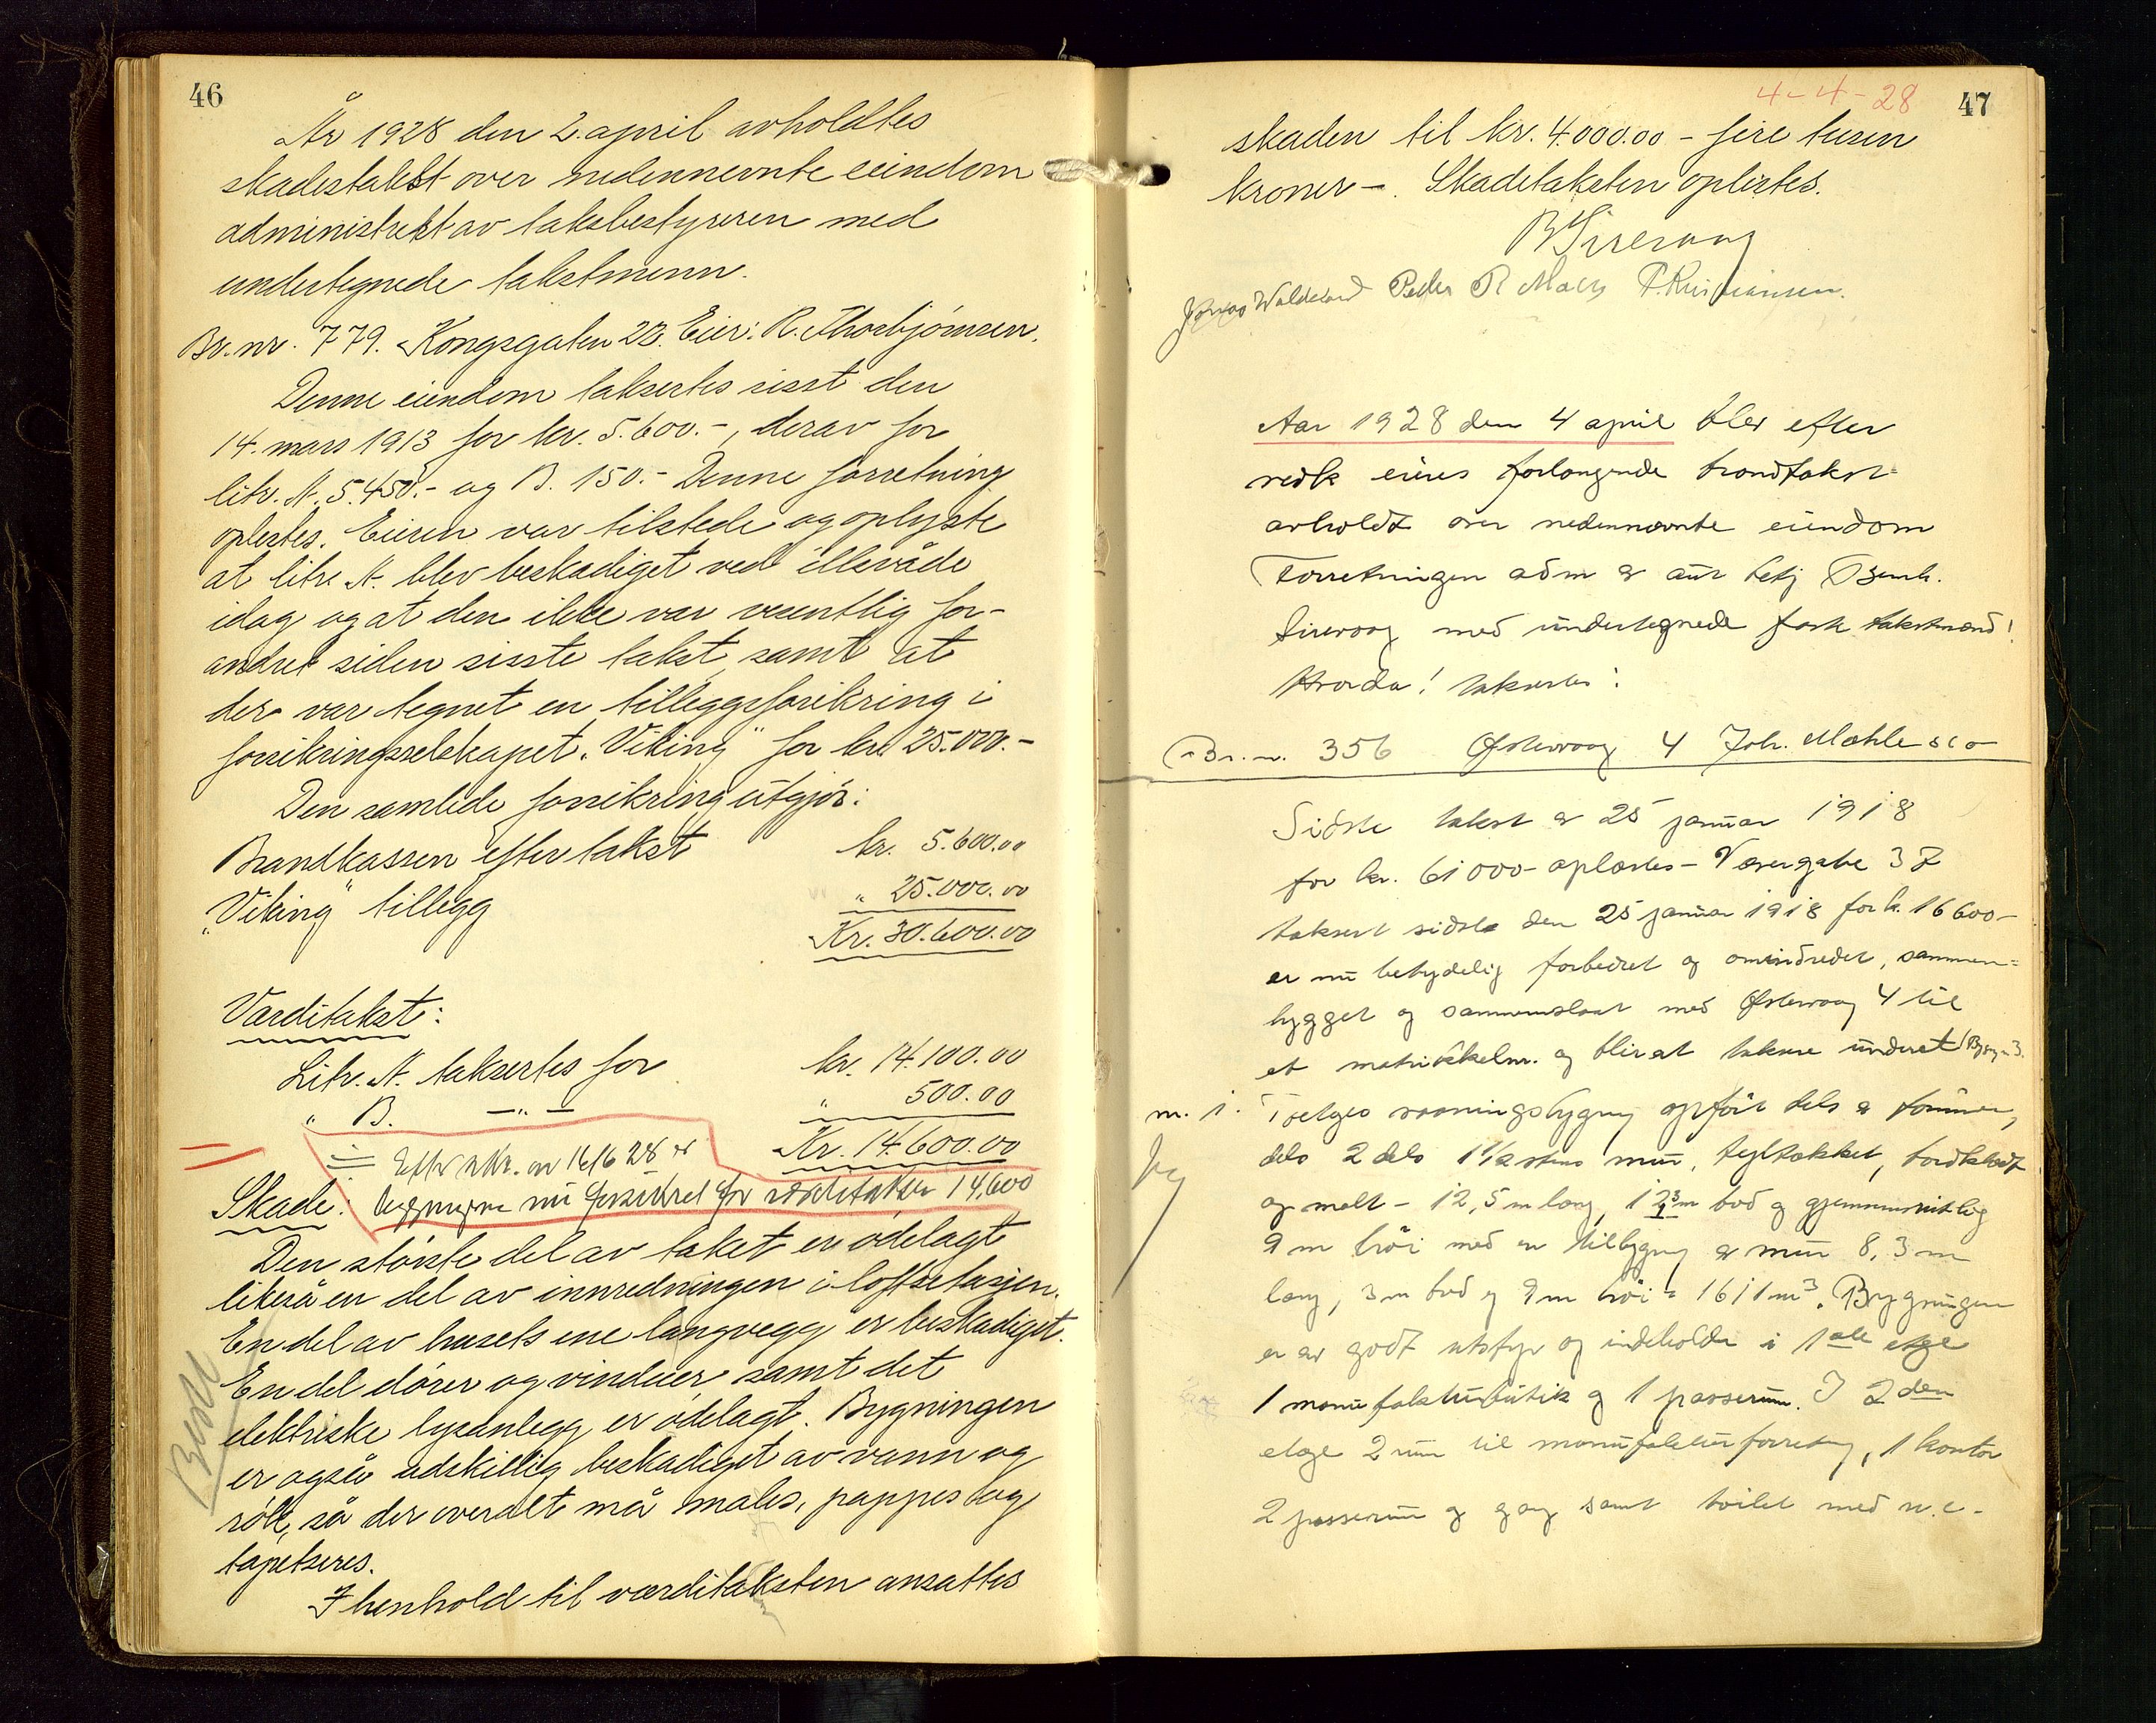 46
År 1928 den 2. april avholdtes
skadestakst over nedennevnte eiendom
administrert av takstbestyreren med
undertegnede takstmenn.
Br. nr. 779. Kongsgaten 22. Eier: R. Thorbjörnsen.
Denne eiendom taksertes sisst den
14. mars 1913 for kr. 5.600.-, derav for
litr. A. 5.450.- og B. 150.- Denne forretning
oplestes. Eieren var tilstede og oplyste
at litr. A. blev beskadiget ved illsvåde
idag og at den ikke var vesentlig for-
andret siden sisste takst, samt at
der var tegnet en tilleggsforsikring i
forsikringsselskapet „Viking" for kr. 25.000.-
Den samlede forsikring utgjör:
Brandkassen efter takst kr. 5.600.00
„Viking" tillegg " 25.000.00
Kr. 30.600.00
Værditakst:
Litr. A. taksertes for kr. 14.100.00
" B. —"— " 500.00
Kr. 14.600.00
Efter skr. av 16/6 28 er
Skade: bygningerne nu forsikret for værditaksten 14,600
Den störste del av taket er ödelagt
likeså en del av innredningen i loftsetasjen.
En del av husets ene langvegg er beskadiget.
En del dörer og vinduer samt det
elektriske lysanlegg er ödelagt. Bygningen
er også adskillig beskadiget av vann og
rök, så der overalt må males, pappes og
tapetseres.
I henhold til værditaksten ansattes
4-4-28 47
skaden til kr. 4.000.00 - fire tusen
kroner -. Skadetaksten oplestes.
B Sirevaag
Jonas Waldeland Peder R Maeg
Aar 1928 den 4 april blev efter
vedk eieres forlangende brandtakst
avholdt over nedennævnte eiendom
Forretningen adm av Bernh.
Sirevaag med undertegnede fast takstmænd!
Hvorda! taksertes:
Br. nr. 356 Østervaag 4 Joh. Mæhle & co
Sidste takst av 25 januar 1918
for kr. 61000- oplæstes - Værgate 37
taksert sidst den 25 januar 1918 for k. 16600-
er nu betydelig forbedret og omindredet, sammen-
bygget og sammenslaat med Østervaag 4 til
et matrikkelnr. og blir at taksere under et
m. i. Toetges vaaningsbygng opfört dels av tömmer,
dels 2 dels 1½ stens mur, tegltækket, bordklædt
og malt - 12,5 m lang, 12 m bred og gjennemsnitlig
9 m höi med en tilbygng av mur 8,3 m
lang, 3 m bred og 9 m höi = 1611 m³. Bygningen
er av godt utstyr og indeholder i 1ste etge
1 manufakturbutik og 1 passerum. I 2den
etage 2 rum til manufakturforretng, 1 kontor
2 passerum og gang samt toilet med w.c.